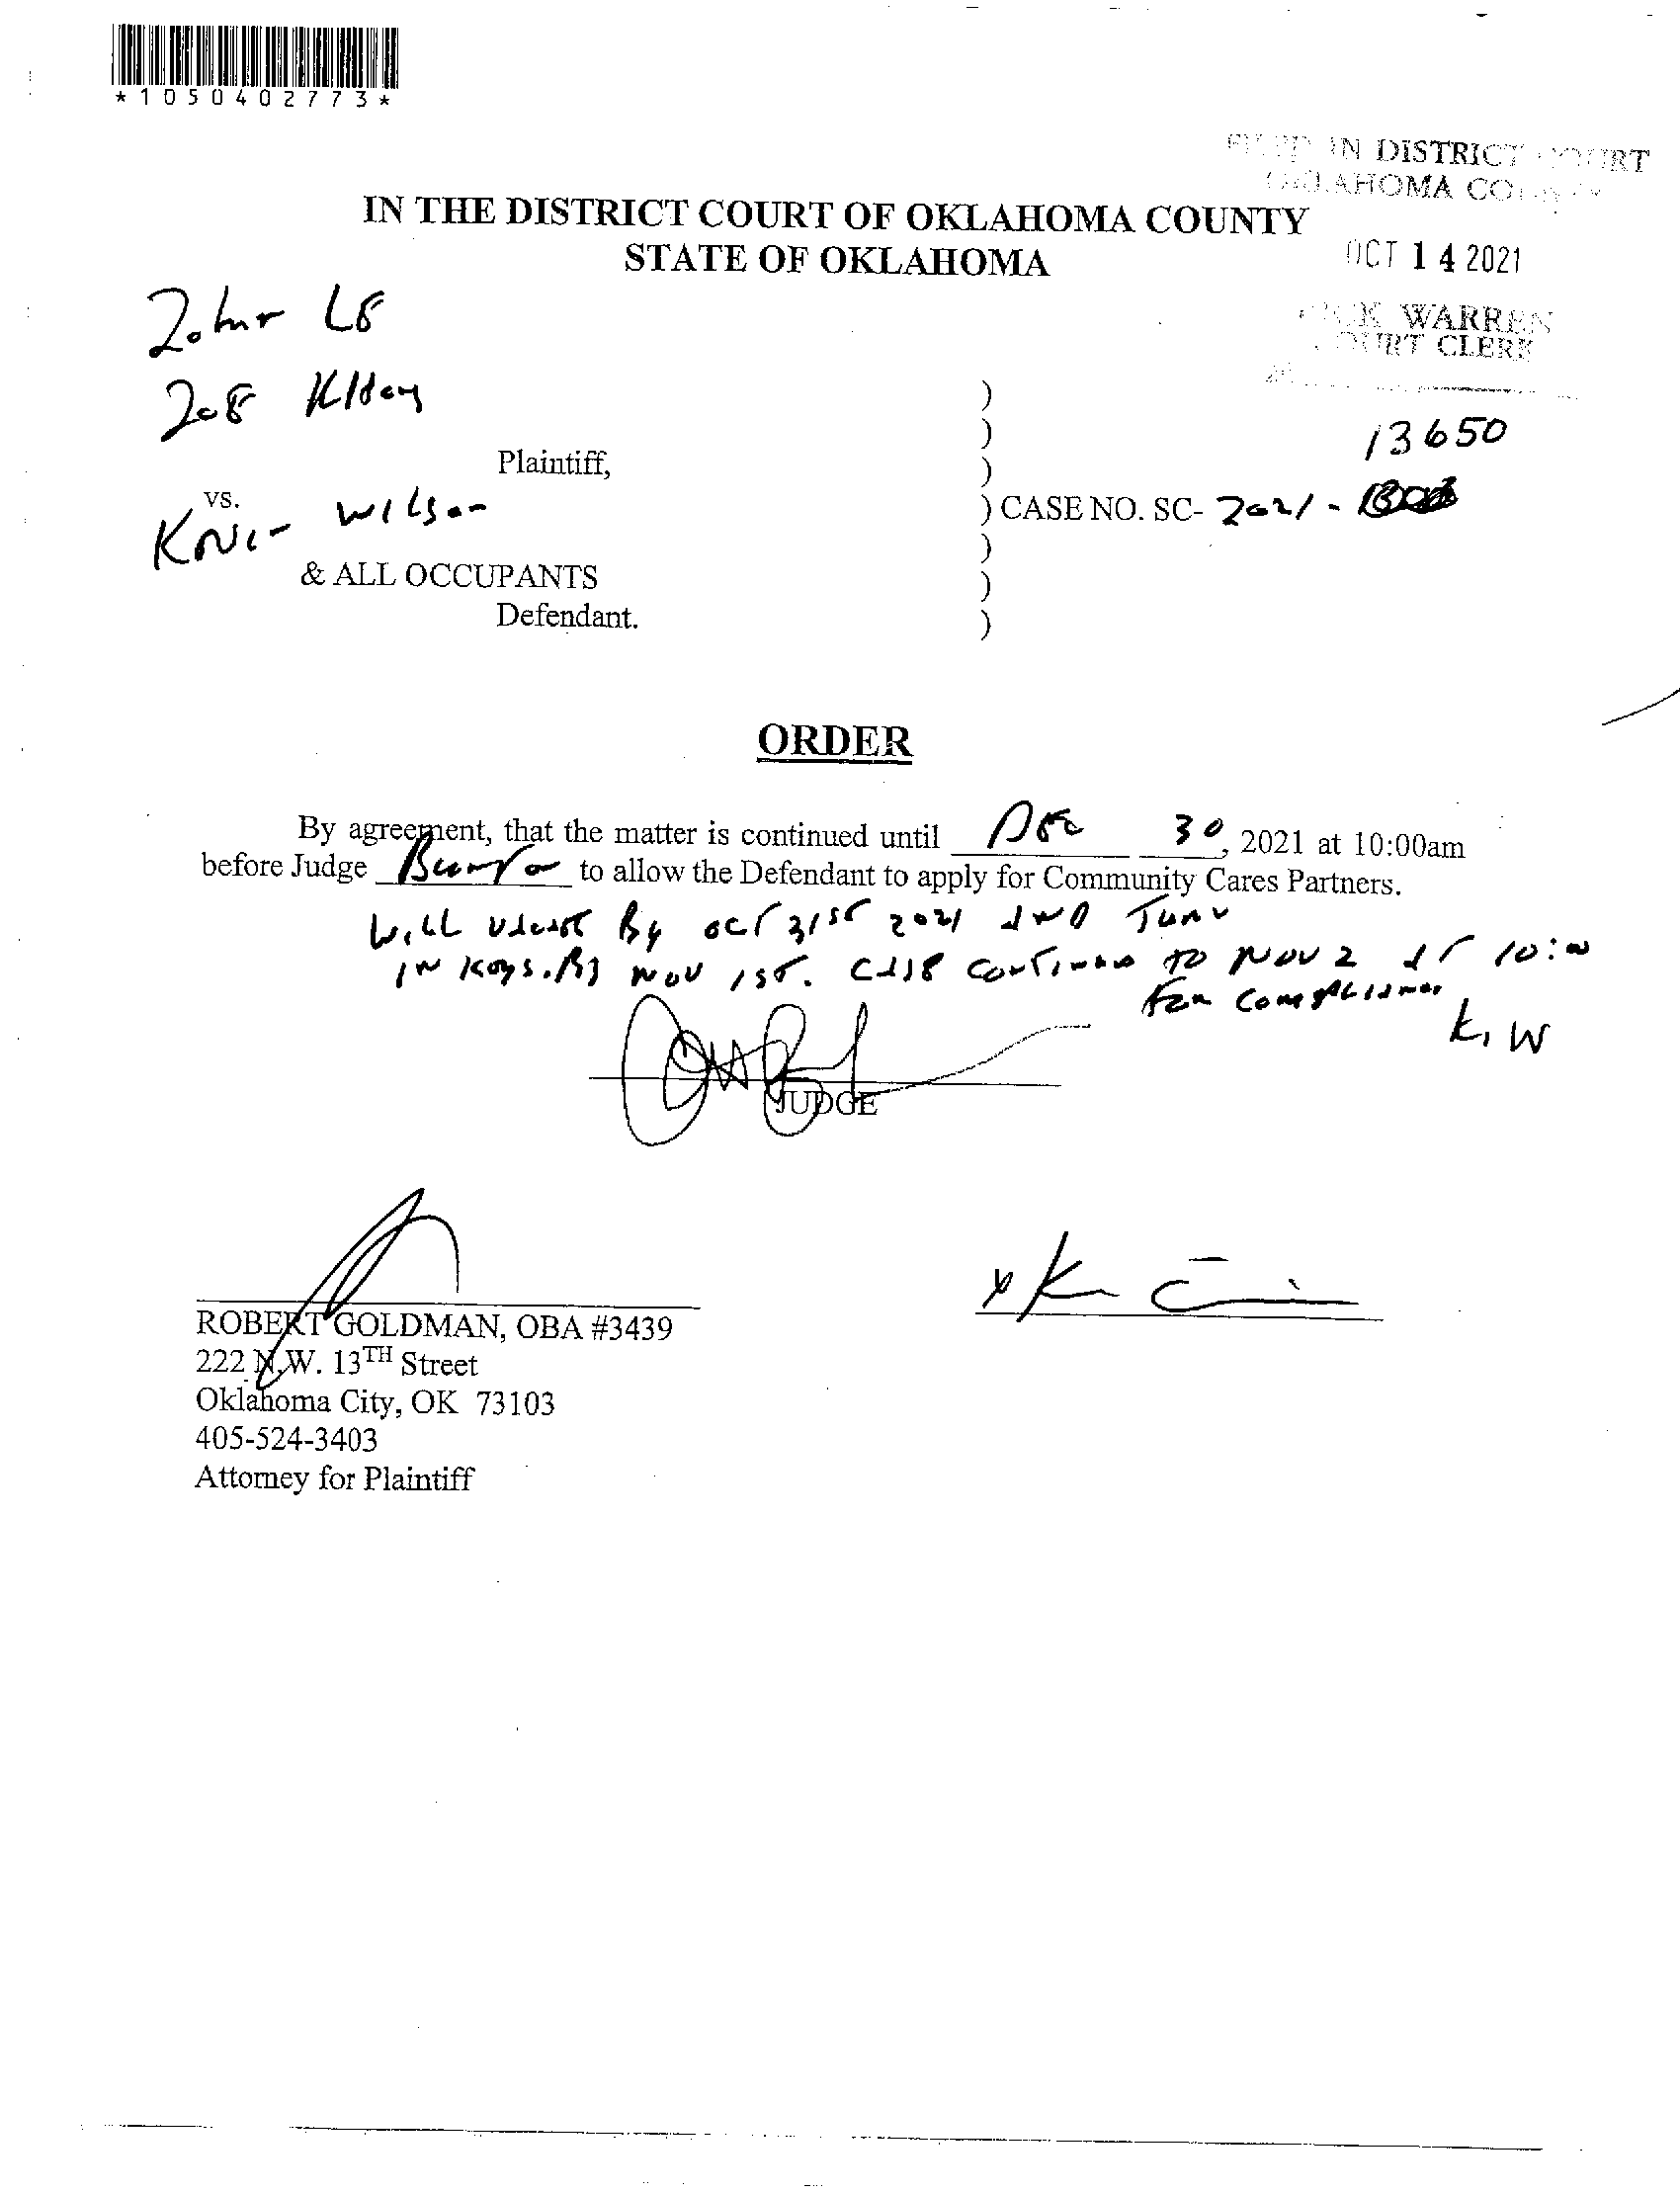 *1050402773*
IN DISTRICT COURT
OKLAHOMA COUNTY
IN THE DISTRICT COURT OF OKLAHOMA COUNTY
STATE OF OKLAHOMA
OCT 14 2021
WARREN
COURT CLERK
13650
Plaintiff,
vs.
Wilson
) CASE NO. SC- 2021 -
& ALL OCCUPANTS
Defendant.
ORDER
By agreement, that the matter is continued until Dec 30, 2021 at 10:00am
before Judge to allow the Defendant to apply for Community Cares Partners.
Will vacate By oct 31st 2021 and Turn
in Keys. By Nov 1st. Case continued to Nov 2 at 10:00
For compliance
K, W
JUDGE
x
ROBERT GOLDMAN, OBA #3439
222 N.W. 13TH Street
Oklahoma City, OK 73103
405-524-3403
Attorney for Plaintiff